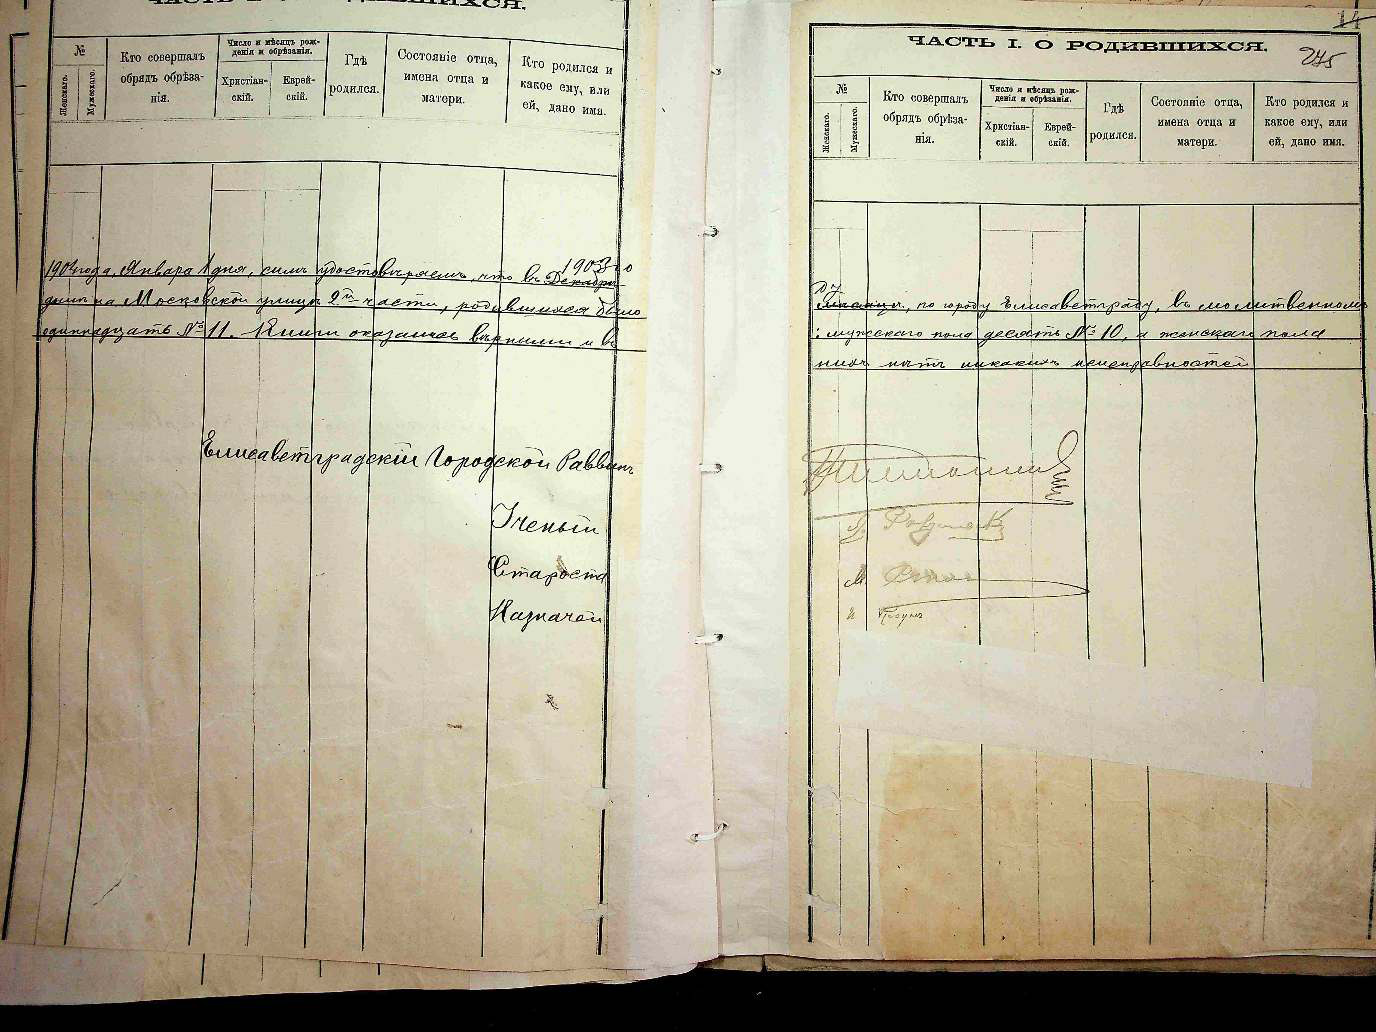 ЧАСТЬ I. О РОДИВШИХСЯ.
№
Женскаго.
Мужескаго.
Кто совершалъ
обрядъ обрѣза-
нія.
Число и мѣсяцъ рож-
денія и обрѣзанія.
Христіан-
скій.
Еврей-
скій.
Гдѣ
родился.
Состояніе отца,
имена отца и
матери.
Кто родился и
какое ему, или
ей, дано имя.
1904 года, Января 1 дня, симъ удостовѣряемъ, что въ Декабрѣ 1903 го
на Московской улицѣ 2й части, родившихся было
одиннадцать № 11. Книги оказались вѣрными и въ
Елисаветградскій Городской Раввинъ
Ученый
Староста
Казначей
14
245
ЧАСТЬ I. О РОДИВШИХСЯ.
№
Женскаго.
Мужескаго.
Кто совершалъ
обрядъ обрѣза-
нія.
Число и мѣсяцъ рож-
денія и обрѣзанія.
Христіан-
скій.
Еврей-
скій.
Гдѣ
родился.
Состояніе отца,
имена отца и
матери.
Кто родился и
какое ему, или
ей, дано имя.
году
мѣсяцѣ, по городу Елисаветграду, въ молитвенномъ
: мужскаго пола десять № 10, а женскаго пола
нихъ нѣтъ никакихъ неисправностей